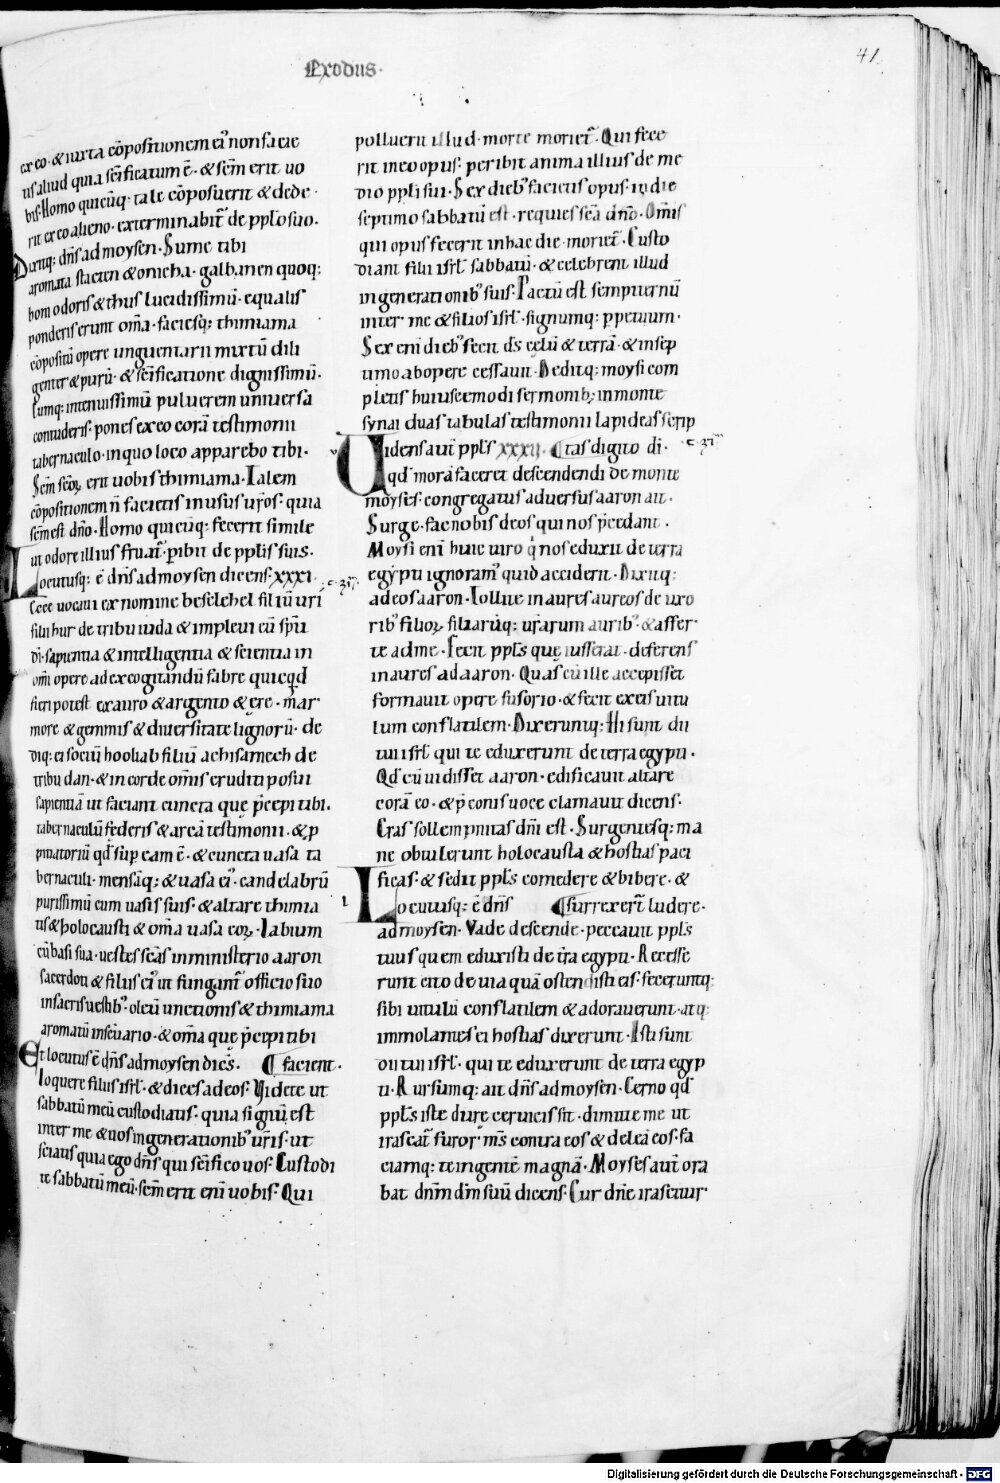 Exodus.
41
ex eo · & iuxta cōpositionem ei᷒ non facie
tis aliud quia sc̄ificatum ē · & sc̄m erit uo
bis · Homo quicūq; tale cōposuerit & dede
rit ex eo alieno · exterminabit᷑ de pplo suo ·
Dixitq; dn̄s ad moysen · Sume tibi
aromata stacten & onicha · galbanen quoq;
boni odoris & thus lucidissimū · equalis
ponderis erunt om̄a · faciesq; thimiama
cōpositū opere unguentarii mixtū dili
genter & purū · & sc̄ificatione dignissimū ·
Cumq; in tenuissimū puluerem uniuersa
contuderis · pones ex eo corā testimonii
tabernaculo · in quo loco apparebo tibi ·
Sc̄m sc̄oꝝ erit uobis thimiama · Talem
cōpositionem n̄ facietis in usus ur̄os · quia
sc̄m est dn̄o · Homo quicūq; fecerit simile
ut odore illius fruat᷑ · ꝑibit de pplis suis ·
Locutusq; ē dn̄s ad moysen dicens · xxxi ·
c · 31 ·
Ecce uocaui ex nomine beselehel filiū uri
filii hur de tribu iuda & impleui eū sp̄u
dī · sapientia & intelligentia & scientia in
om̄i opere ad excogitandū fabre quicqd
fieri potest ex auro & argento & ere · mar
more & gemmis & diuersitate lignorū · de
diq; ei sociū hooliab filiū achisamech de
tribu dan · & in corde om̄is eruditi posui
sapientiā ut faciant cuncta que p̄cepi tibi ·
tabernaculū federis & arcā testimonii · & ꝓ
piciatoriū qd̄ suꝑ eam ē · & cuncta uasa ta
bernaculi · mensāq; & uasa ei᷒ · candelabrū
purissimū cum uasis suis · & altare thimia
tis & holocausti & om̄a uasa eoꝝ · labium
cū basi sua · uestes sc̄as in ministerio aaron
sacerdoti & filiis ei᷒ ut fungant᷑ officio suo
in sacris uestib᷒ · oleū unctionis & thimiama
aromatū in sc̄uario · & om̄a que p̄cepi tibi
Et locutus ē dn̄s ad moysen dicēs · ¶ facient ·
loquere filiis isrl̄ · & dices ad eos · Videte ut
sabbatū meū custodiatis · quia signū est
inter me & uos in generationib᷒ ur̄is · ut
sciatis quia ego dn̄s qui sc̄ifico uos · Custodi
te sabbatū meū · sc̄m erit eni᷑ uobis · Qui
polluerit illud · morte moriet᷑ · Qui fece
rit in eo opus · peribit anima illius de me
dio ppli sui · Sex dieb᷒ facietis opus · in die
septimo sabbatū est · requies sc̄a dn̄o · Om̄is
qui opus fecerit in hac die · moriet᷑ · Custo
diant filii isrl̄ sabbatū · & celebrent illud
in generationib᷒ suis · Pactū est sempiternū
inter me & filios isrl̄ · signumq; ꝑpetuum ·
Sex eni᷑ dieb᷒ fecit ds̄ celū & terrā · & in sep
timo ab opere cessauit · Deditq; moysi com
pletis huiuscemodi sermonib; in monte
synai duas tabulas testimonii lapideas scrip
Uidens aut̄ ppl̄s xxxii · ¶ tas digito dī ·
c · 31
qd̄ morā faceret descendendi de monte
moyses · congregatus aduersus aaron ait ·
Surge · fac nobis deos qui nos p̄cedant ·
Moysi eni᷑ huic uiro q̇ nos eduxit de terra
egypti ignoram᷒ quid acciderit · Dixitq;
ad eos aaron · Tollite inaures aureos de uxo
rib᷒ filioꝝ filiarūq; ur̄arum aurib᷒ · & affer
te ad me · Fecit ppl̄s que iusserat · deferens
inaures ad aaron · Quas cū ille accepisset
formauit opere fusorio · & fecit ex eis uitu
lum conflatilem · Dixeruntq; Hi sunt dii
tui isrl̄ qui te eduxerunt de terra egypti ·
Qd̄ cū uidisset aaron · edificauit altare
corā eo · & p̄conis uoce clamauit dicens ·
Cras sollempnitas dn̄i est · Surgentesq; ma
ne obtulerunt holocausta & hostias paci
ficas · & sedit ppl̄s comedere & bibere · &
Locutusq; ē dn̄s ¶ surrexer̄t ludere ·
ad moysen · Vade descende · peccauit ppl̄s
tuus quem eduxisti de tr̄a egypti · Recesse
runt cito de uia quā ostendisti eis · feceruntq;
sibi uitulū conflatilem & adorauerunt · atq;
immolantes ei hostias dixerunt · Isti sunt
dii tui isrl̄ · qui te eduxerunt de terra egyp
ti · Rursumq; ait dn̄s ad moysen · Cerno qd̄
ppl̄s iste dure ceruicis sit · dimitte me ut
irascat᷑ furor m̄s contra eos & deleā eos · fa
ciamq; te in gentē magnā · Moyses aut̄ ora
bat dn̄m dm̄ suū dicens · Cur dn̄e irascitur
Digitalisierung gefördert durch die Deutsche Forschungsgemeinschaft - DFG